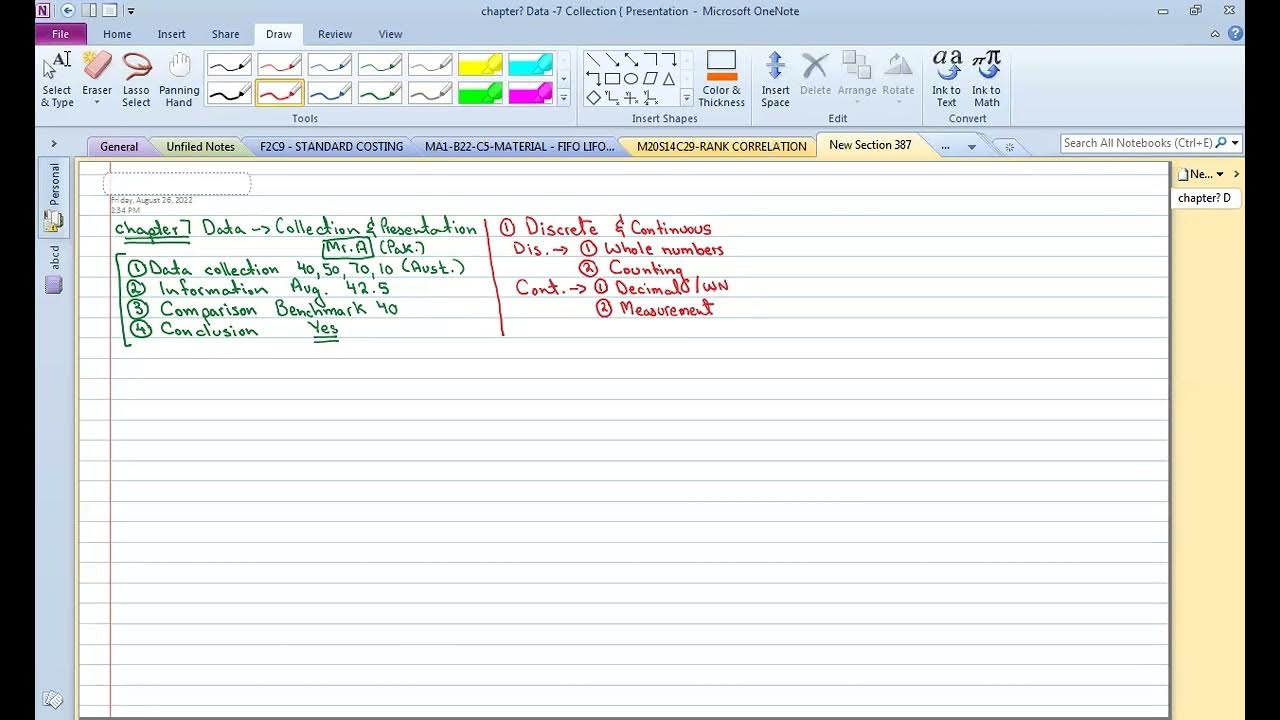 chapter? Data -7 Collection { Presentation - Microsoft OneNote
File Home Insert Share Draw Review View
Select & Type
Eraser
Lasso Select
Panning Hand
Color & Thickness
Insert Space
Delete
Arrange
Rotate
Ink to Text
Ink to Math
Tools
Insert Shapes
Edit
Convert
General
Unfiled Notes
F2C9 - STANDARD COSTING
MA1-B22-C5-MATERIAL - FIFO LIFO...
M20S14C29-RANK CORRELATION
New Section 387
...
Search All Notebooks (Ctrl+E)
Personal
abcd
Ne...
chapter? D
Friday, August 26, 2022
2:34 PM
chapter 7 Data → Collection & Presentation
Mr. A (Pak.)
① Data collection 40, 50, 70, 10 (Aust.)
② Information Avg. 42.5
③ Comparison Benchmark 40
④ Conclusion Yes
① Discrete & Continuous
Dis. → ① Whole numbers
② Counting
Cont. → ① Decimals/WN
② Measurement